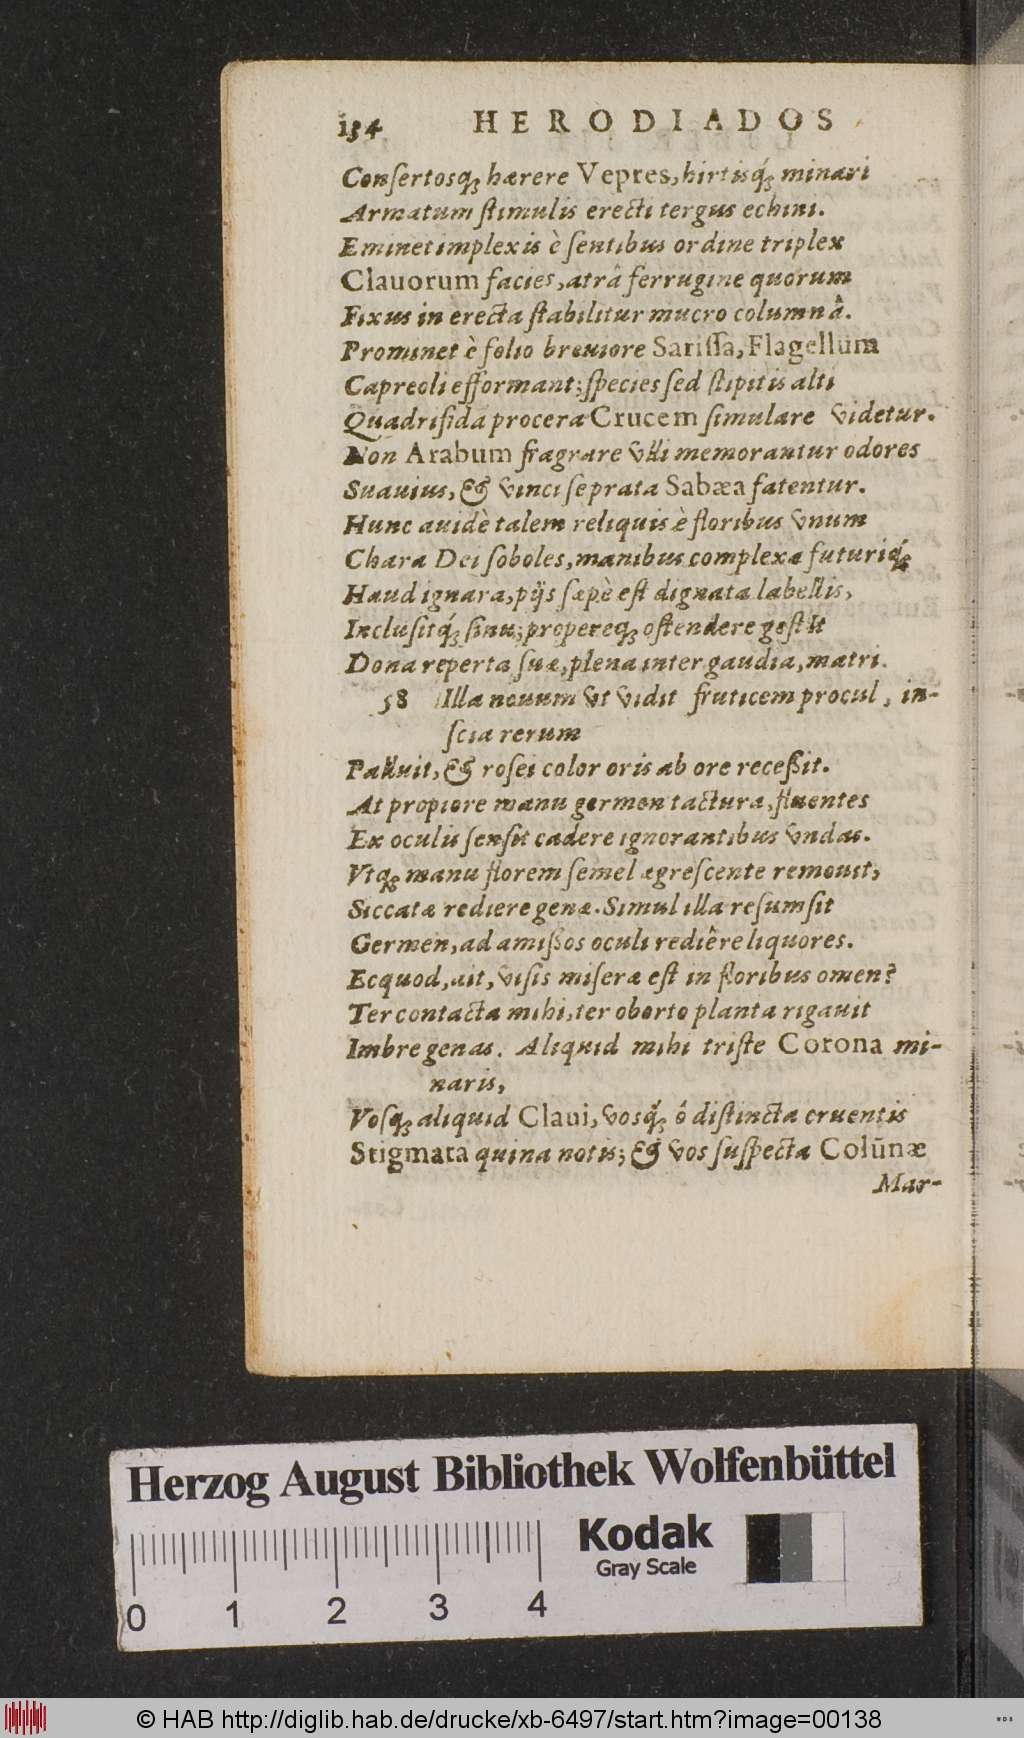 134 HERODIADOS
Consertosq́ꝫ hærere Vepres, hirtisq́ꝫ minari
Armatum stimulis erecti tergus echini.
Eminet implexis è sentibus ordine triplex
Clauorum facies, atrâ ferrugine quorum
Fixus in erecta stabilitur mucro columnâ.
Prominet è folio breuiore Sarissa, Flagellum
Capreoli efformant; species sed stipitis alti
Quadrifida procera Crucem simulare videtur.
Non Arabum fragrare vlli memorantur odores
Suauius, & vinci se prata Sabæa fatentur.
Hunc auidè talem reliquis è floribus vnum
Chara Dei soboles, manibus complexa futuriq́ꝫ
Haud ignara, pijs sæpè est dignata labellis,
Inclusitq́ꝫ sinu; propereqꝫ ostendere gestit
Dona reperta suæ, plena inter gaudia, matri.
58 Illa nouum vt vidit fruticem procul, in-
scia rerum
Palluit, & rosei color oris ab ore recessit.
At propiore manu germen tactura, fluentes
Ex oculis sensit cadere ignorantibus vndas.
Vtqꝫ manu florem semel ægrescente remouit,
Siccatæ rediere genæ. Simul illa resumsit
Germen, ad amissos oculi rediêre liquores.
Ecquod, ait, visis miseræ est in floribus omen?
Ter contacta mihi, ter oborto planta rigauit
Imbre genas. Aliquid mihi triste Corona mi-
naris,
Vosqꝫ aliquid Claui, vosq́ꝫ ô distincta cruentis
Stigmata quina notis; & vos suspecta Colūnæ
Mar-
Herzog August Bibliothek Wolfenbüttel
Kodak
Gray Scale
0 1 2 3 4
© HAB http://diglib.hab.de/drucke/xb-6497/start.htm?image=00138